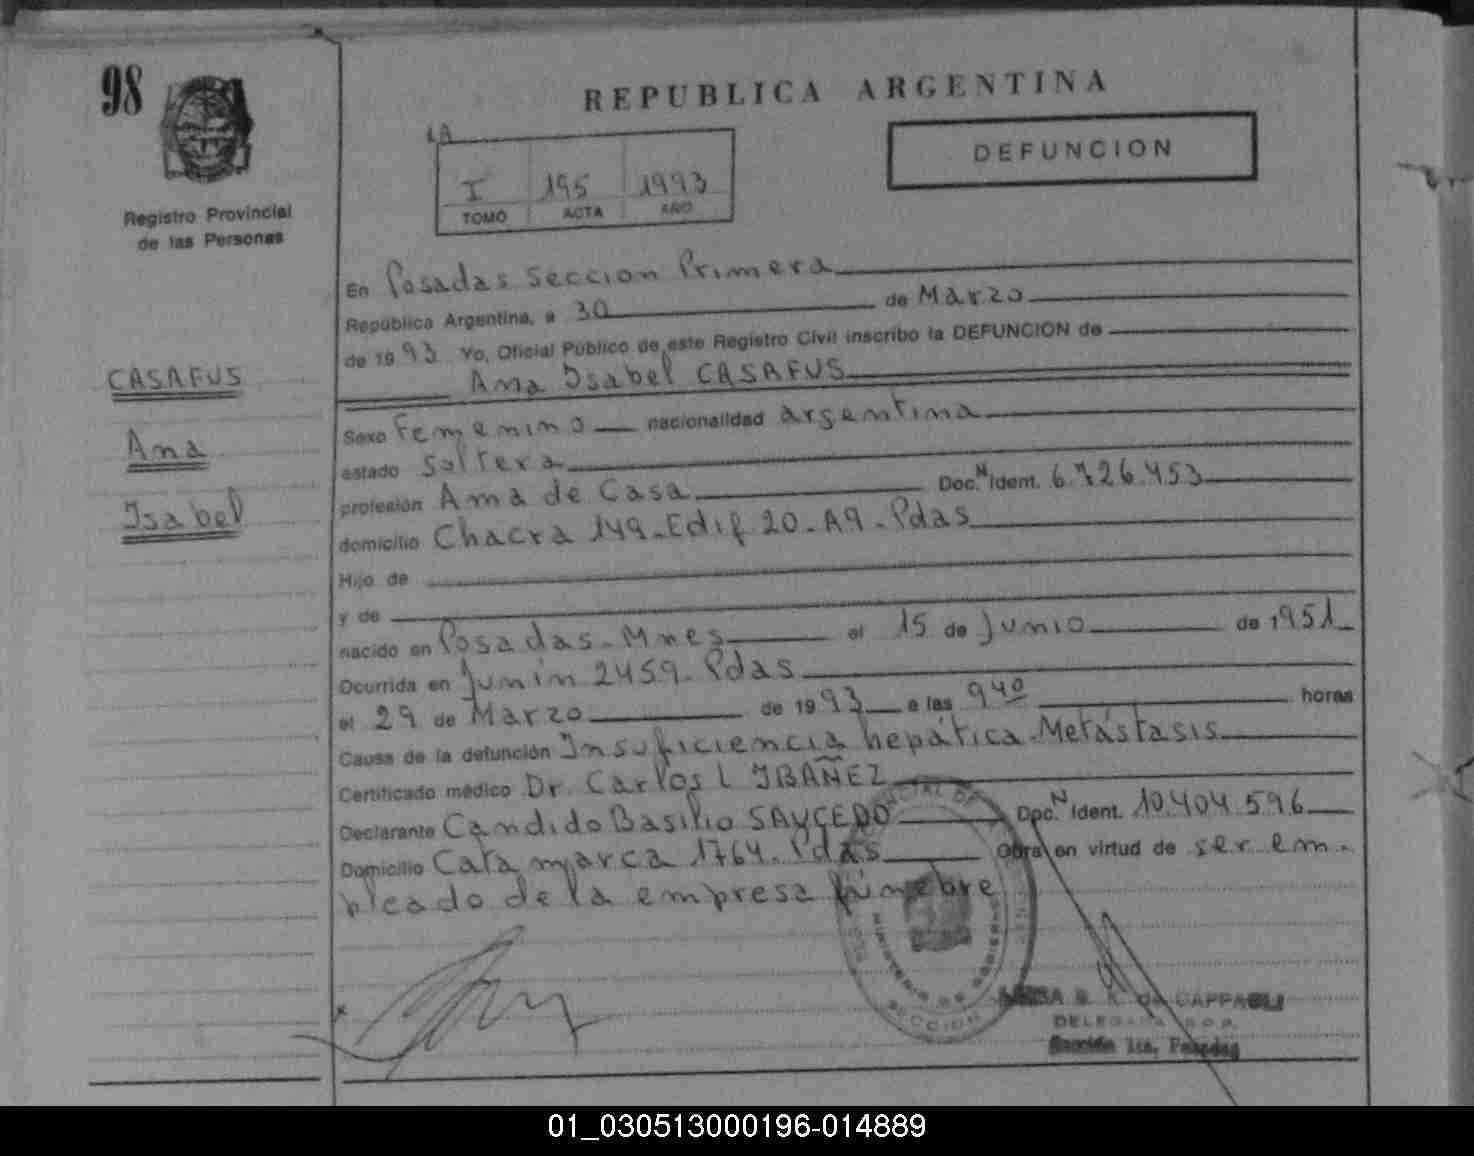 98
REPUBLICA ARGENTINA
1A
DEFUNCION
I 195 1993
TOMO ACTA AÑO
Registro Provincial
de las Personas
CASAFUS
Ana
Isabel
En Posadas Seccion Primera
República Argentina, a 30 de Marzo
de 1993 Yo, Oficial Público de este Registro Civil inscribo la DEFUNCION de
Ana Isabel CASAFUS
Sexo Femenino nacionalidad argentina
estado Soltera
profesión Ama de Casa Doc. N Ident. 6.726.453
domicilio Chacra 149-Edif 20-A9-Pdas
Hijo de
y de
nacido en Posadas-Mnes el 15 de Junio de 1951
Ocurrida en Junín 2459-Pdas
el 29 de Marzo de 1993 a las 9 40 horas
Causa de la defunción Insuficiencia hepática-Metástasis
Certificado médico Dr. Carlos L IBAÑEZ
Declarante Candido Basilio SAUCEDO Doc. N Ident. 10.404.596
Domicilio Catamarca 1764-Pdas Obra en virtud de ser em-
pleado de la empresa fúnebre
MINISTERIO DE GOBIERNO
SECCION
DE CAPPAGLI
DELEGADA
Sección 1ra. Posadas
01_030513000196-014889